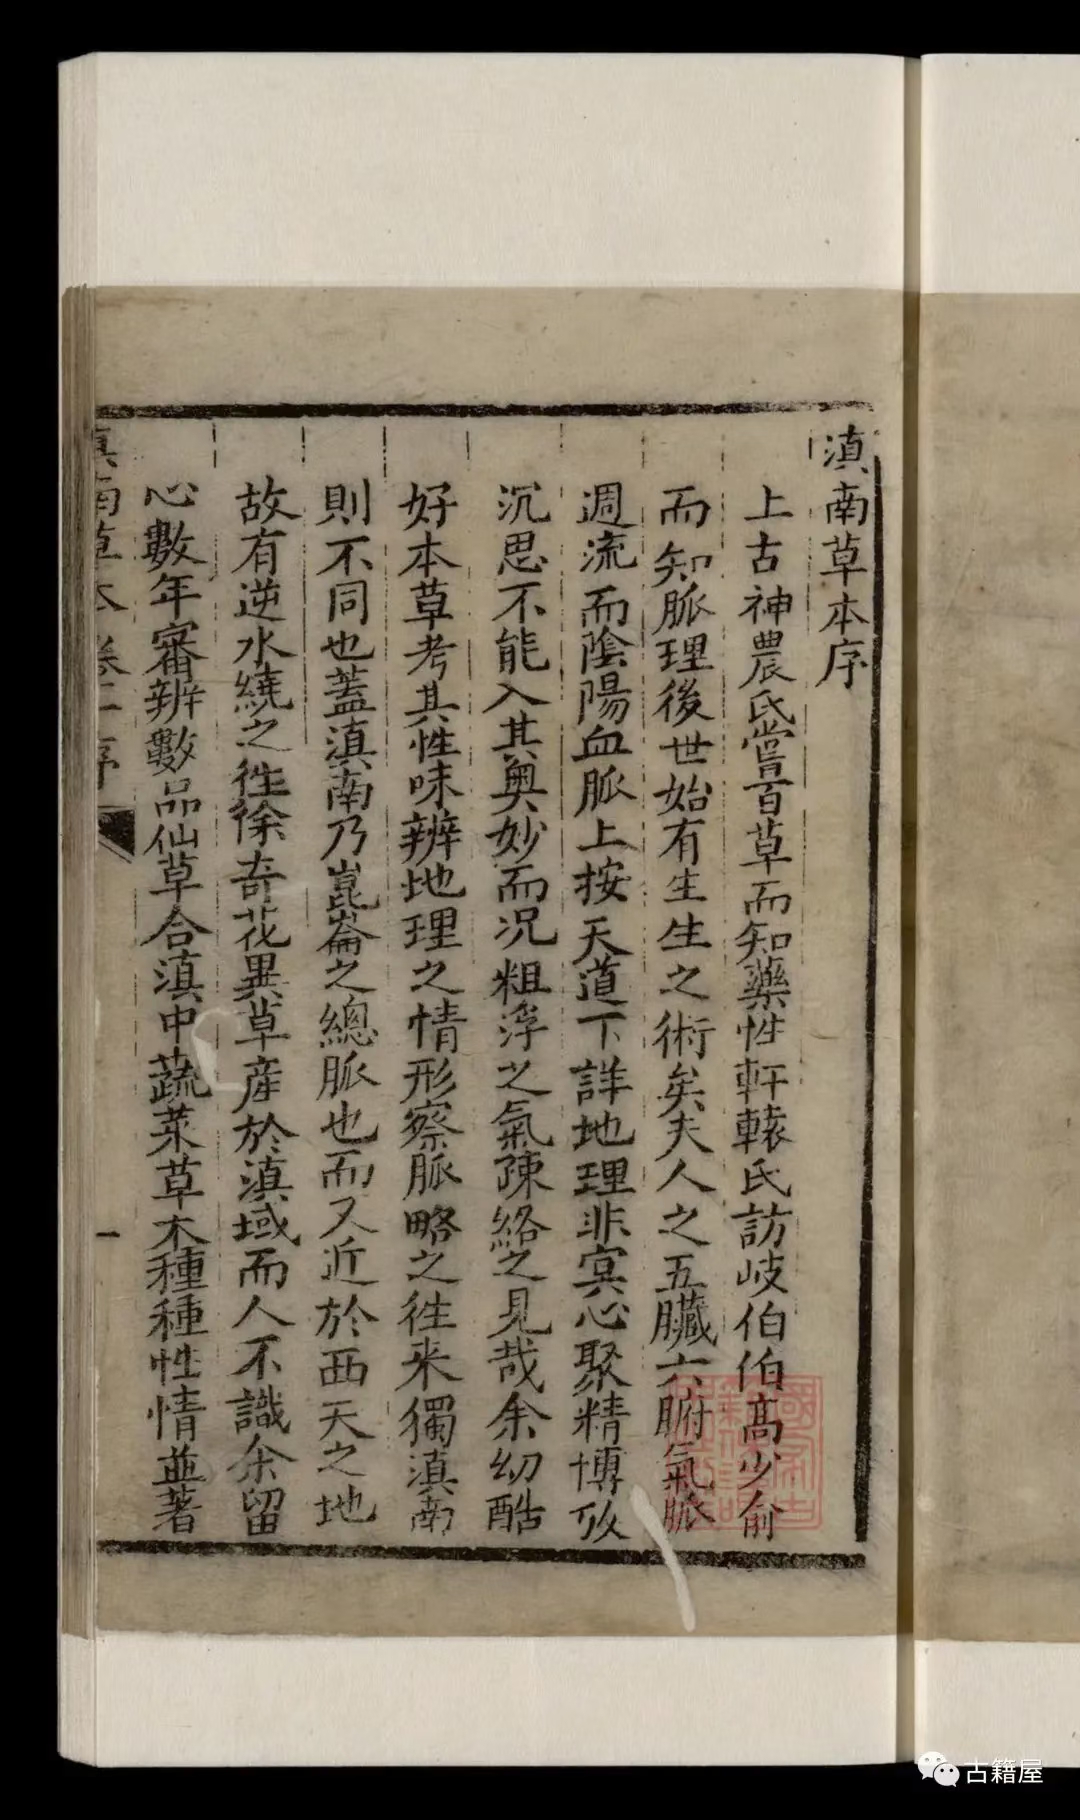 滇南草本序
上古神農氏嘗百草而知藥性軒轅氏訪岐伯伯高少俞
而知脈理後世始有生生之術矣夫人之五臟六腑氣脈
週流而陰陽血脈上按天道下詳地理非冥心聚精博攷
沉思不能入其奧妙而况粗浮之氣疎絡之見哉余幼酷
好本草考其性味辨地理之情形察脈略之徃来獨滇南
則不同也蓋滇南乃崑崙之總脈也而又近於西天之地
故有逆水繞之徃徐奇花異草産於滇域而人不識余留
心數年審辨數品仙草合滇中蔬菜草木種種性情並著
滇南草本卷一序
一
古籍屋